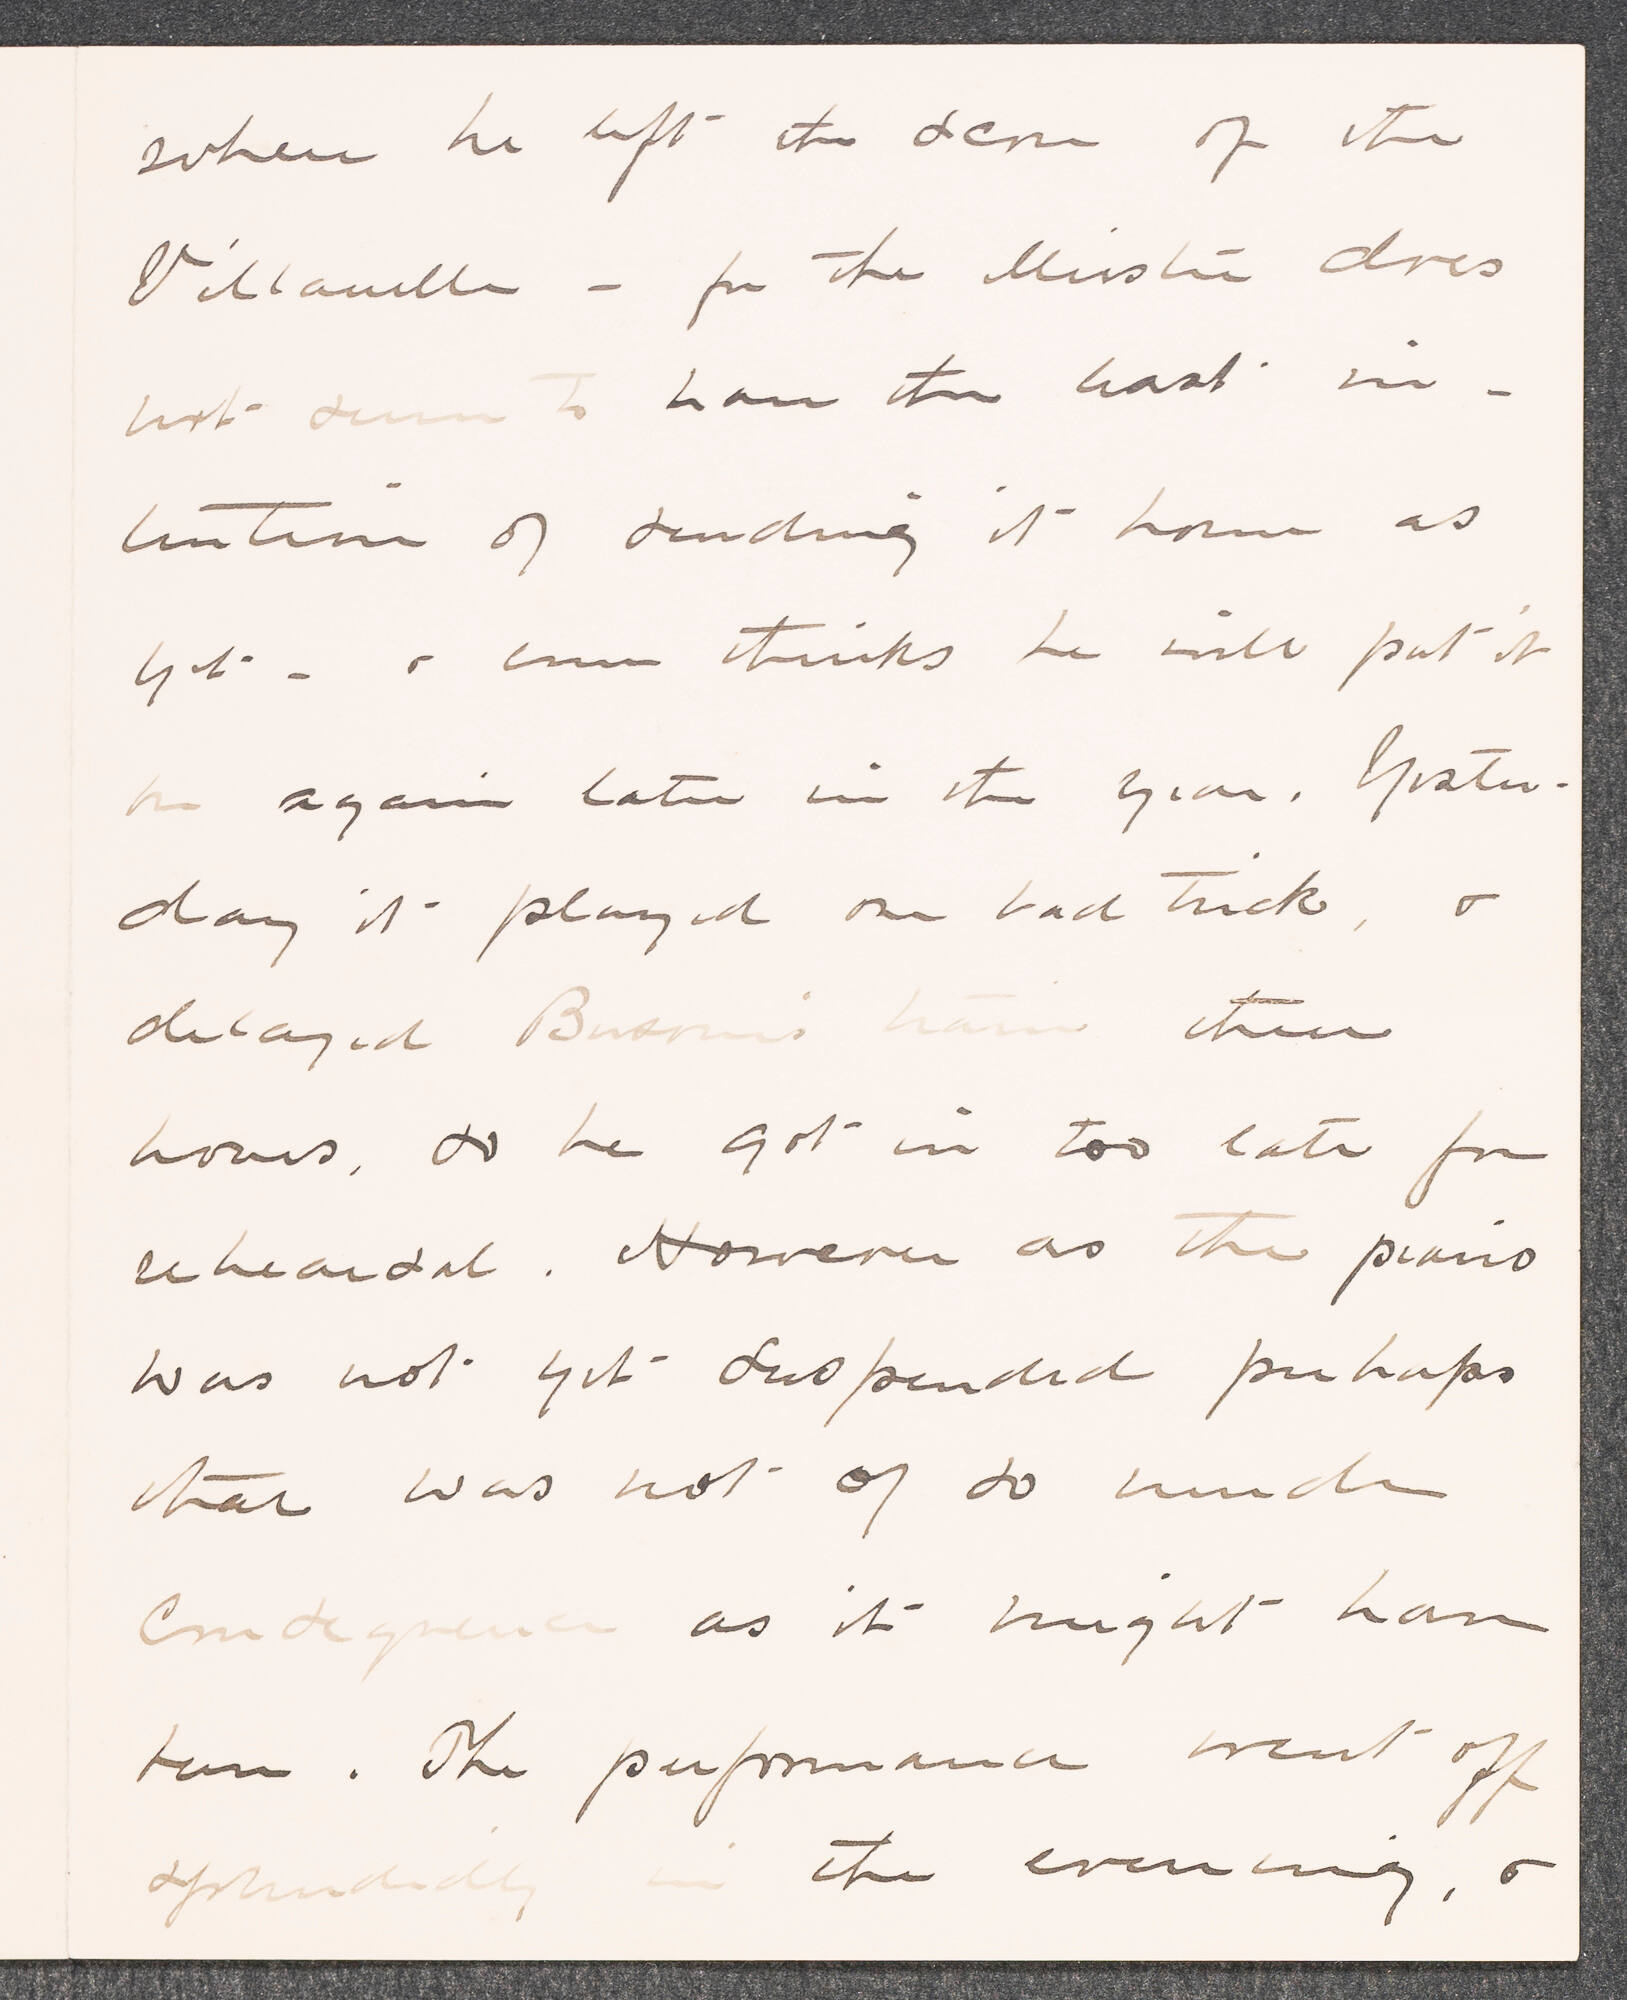 where he left the score of the
Villanelle - for the Meister does
not seem to have the least in-
tention of sending it home as
yet - & even thinks he will put it
on again later in the year. Yester-
day it played one bad trick, &
delayed Busoni's train three
hours, so he got in too late for
rehearsal. However as the piano
was not yet suspended perhaps
that was not of so much
consequence as it might have
been. The performance went off
splendidly in the evening, &